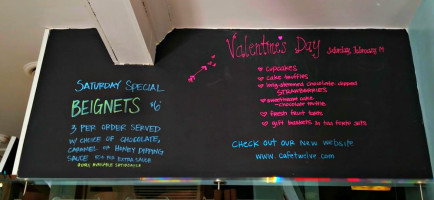 SATURDAY SPECIAL
BEIGNETS $6
3 PER ORDER SERVED
W/ CHOICE OF CHOCOLATE,
CARAMEL OR HONEY DIPPING
SAUCE PER EXTRA SAUCE
Valentine's Day Saturday, February 14
CUPCAKES
cake truffles
long-stemmed chocolate-dipped
STRAWBERRIES
cake
chocolate truffle
fresh fruit tarts
gift baskets
CHECK OUT OUR NEW WEBSITE
www.cafetwelve.com